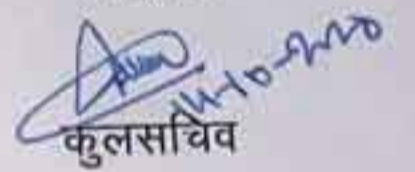 14-10-2020
कुलसचिव